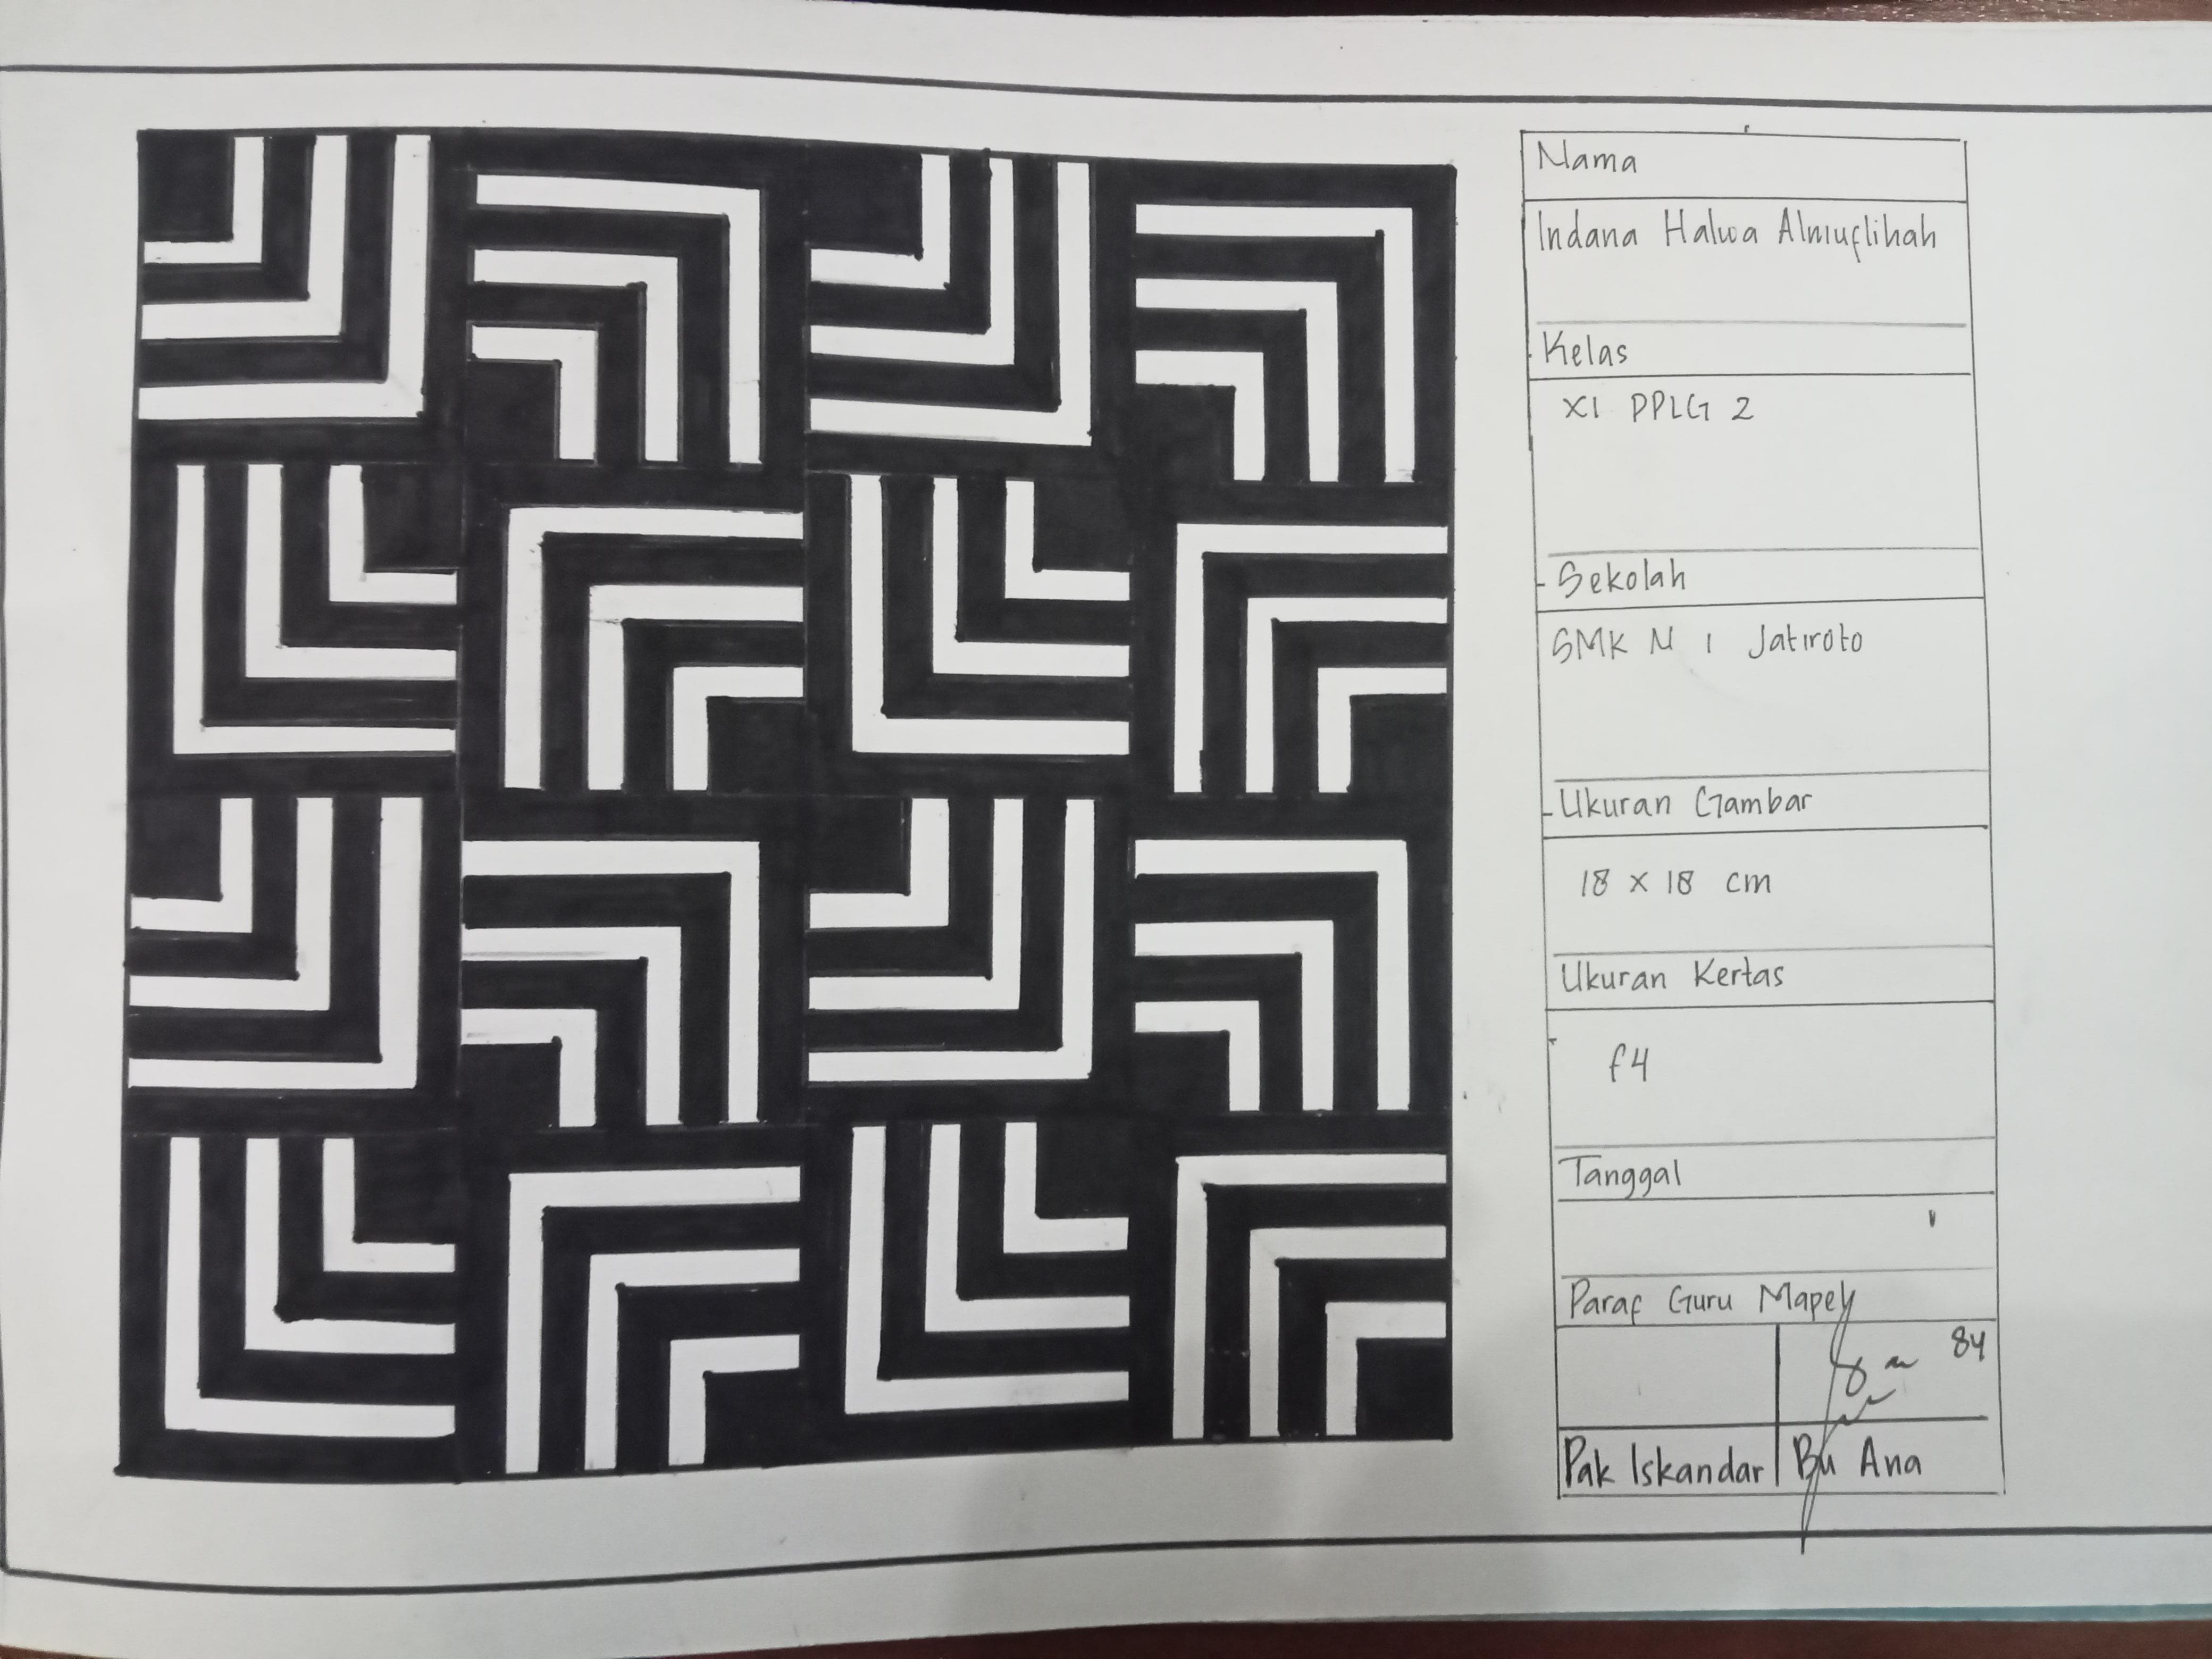 Nama
Indana Halwa Almuflihah
Kelas
XI PPLG 2
Sekolah
SMK N 1 Jatiroto
Ukuran Gambar
18 x 18 cm
Ukuran Kertas
f4
Tanggal
Paraf Guru Mapel
84
Pak Iskandar Bu Ana